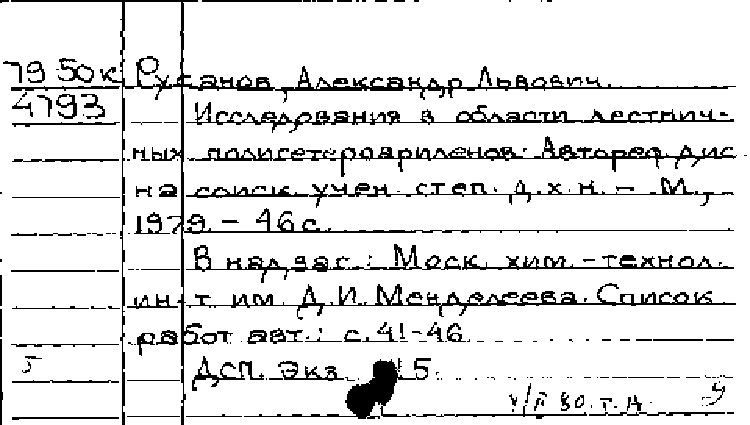 79 50к Русанов, Александр Львович.
4793 Исследования в области лестнич-
ных полигетероариленов: Автореф дис
на соиск. учен. степ. д.х.н. - М.,
1979. - 46 с.
В надзаг.: Моск. хим. - технол.
ин-т им. Д.И. Менделеева. Список
работ авт.: с. 41-46
ДСП. Экз. 5.
80.